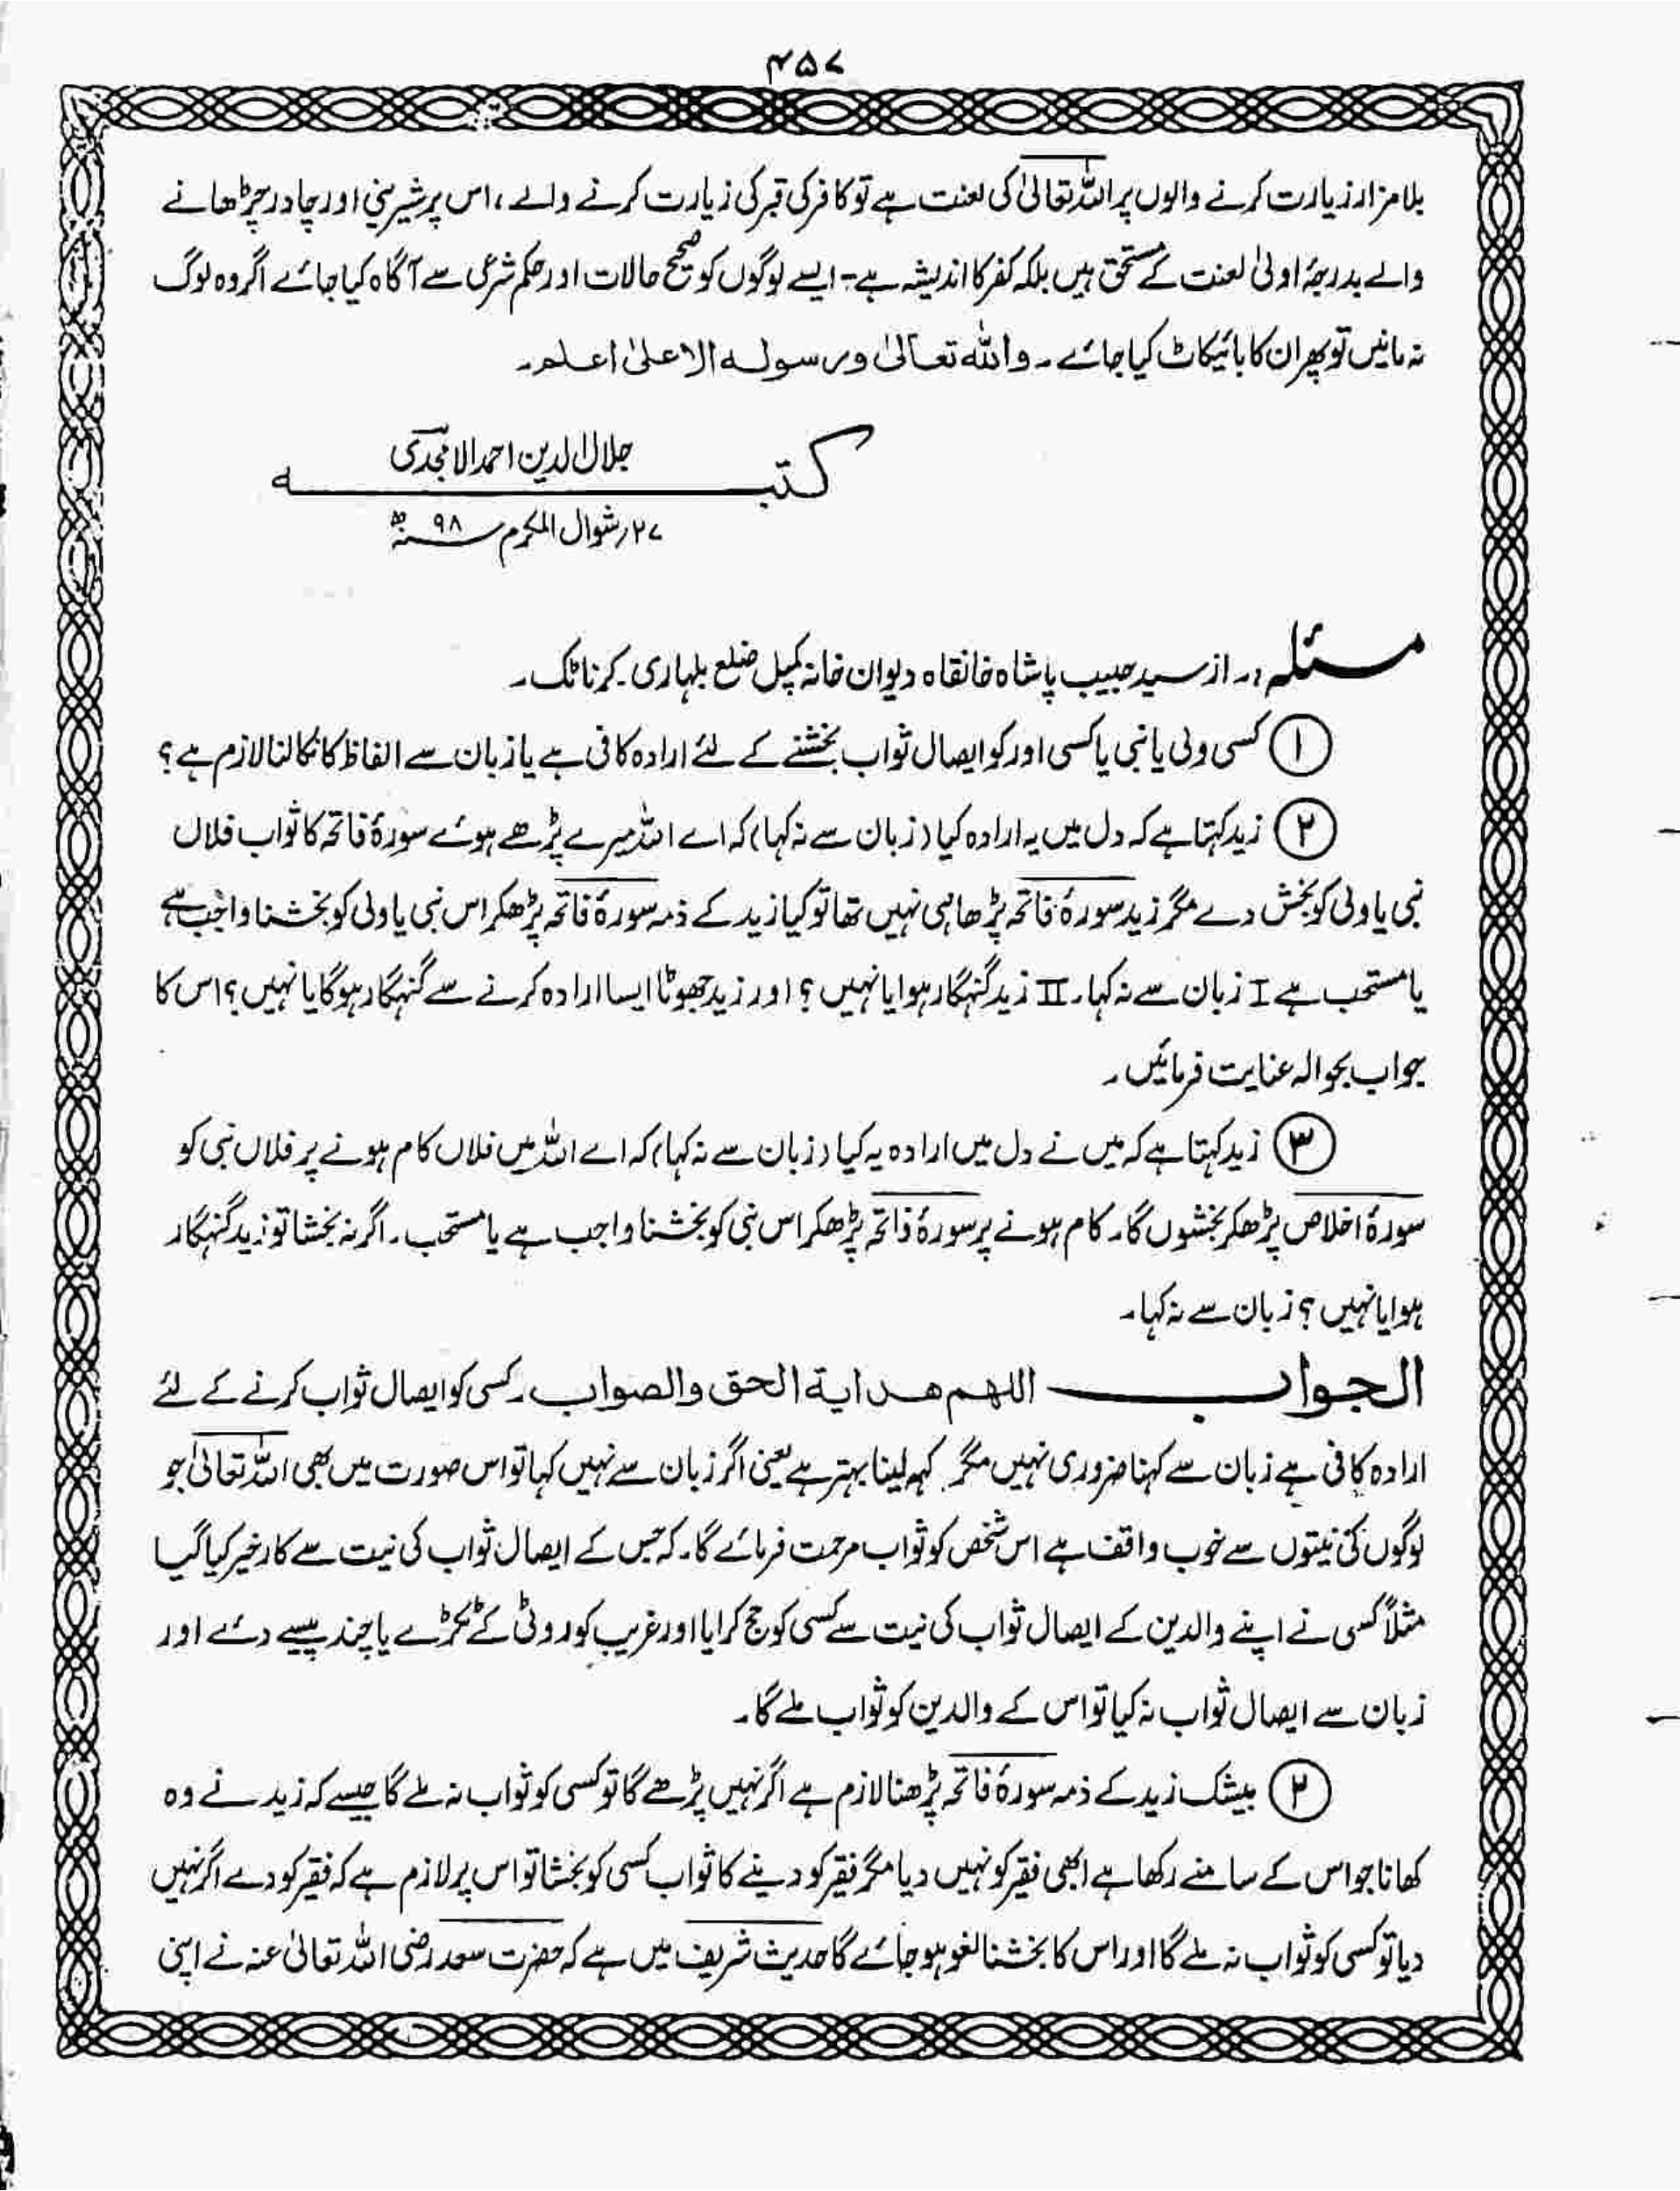 ۴۵۷
بلا مزار زیارت کرنے والوں پر اللہ تعالیٰ کی لعنت ہے تو کافر کی قبر کی زیارت کرنے والے ، اس پر شیرینی اور چادر چڑھانے
والے بدرجۂ اولیٰ لعنت کے مستحق ہیں بلکہ کفر کا اندیشہ ہے۔ ایسے لوگوں کو صحیح حالات اور حکم شرعی سے آگاہ کیا جائے اگر وہ لوگ
نہ مانیں تو پھر ان کا بائیکاٹ کیا جائے ۔ واللہ تعالیٰ ورسولہ الاعلیٰ اعلم۔
جلال الدین احمد الامجدی
کتبہ
۲۷؍ شوال المکرم سنہ ۹۸ھ
مسئلہ :۔ از سید حبیب پاشاہ خانقاہ دیوان خانہ کمپل ضلع بلہاری۔ کرناٹک۔
① کسی ولی یا نبی یا کسی اور کو ایصال ثواب بخشنے کے لئے ارادہ کافی ہے یا زبان سے الفاظ کا نکالنا لازم ہے ؟
② زید کہتا ہے کہ دل میں یہ ارادہ کیا (زبان سے نہ کہا) کہ اے اللہ میرے پڑھے ہوئے سورۂ فاتحہ کا ثواب فلاں
نبی یا ولی کو بخش دے مگر زید سورۂ فاتحہ پڑھا ہی نہیں تھا تو کیا زید کے ذمہ سورۂ فاتحہ پڑھکر اس نبی یا ولی کو بخشنا واجب ہے
یا مستحب ہے I زبان سے نہ کہا۔ II زید گنہگار ہوا یا نہیں ؟ اور زید جھوٹا ایسا ارادہ کرنے سے گنہگار ہوگا یا نہیں ؟ اس کا
جواب بحوالہ عنایت فرمائیں ۔
③ زید کہتا ہے کہ میں نے دل میں ارادہ یہ کیا (زبان سے نہ کہا) کہ اے اللہ میں فلاں کام ہونے پر فلاں نبی کو
سورۂ اخلاص پڑھکر بخشوں گا۔ کام ہونے پر سورۂ فاتحہ پڑھکر اس نبی کو بخشنا واجب ہے یا مستحب ۔ اگر نہ بخشا تو زید گنہگار
ہوا یا نہیں ؟ زبان سے نہ کہا۔
الجواب اللہم ھدایۃ الحق والصواب ۔ کسی کو ایصال ثواب کرنے کے لئے
ارادہ کافی ہے زبان سے کہنا ضروری نہیں مگر کہہ لینا بہتر ہے یعنی اگر زبان سے نہیں کہا تو اس صورت میں بھی اللہ تعالیٰ جو
لوگوں کی نیتوں سے خوب واقف ہے اس شخص کو ثواب مرحمت فرمائے گا۔ کہ جس کے ایصال ثواب کی نیت سے کار خیر کیا گیا
مثلاً کسی نے اپنے والدین کے ایصال ثواب کی نیت سے کسی کو حج کرایا اور غریب کو روٹی کے ٹکڑے یا چند پیسے دئے اور
زبان سے ایصال ثواب نہ کیا تو اس کے والدین کو ثواب ملے گا۔
② بیشک زید کے ذمہ سورۂ فاتحہ پڑھنا لازم ہے اگر نہیں پڑھے گا تو کسی کو ثواب نہ ملے گا جیسے کہ زید نے وہ
کھانا جو اس کے سامنے رکھا ہے ابھی فقیر کو نہیں دیا مگر فقیر کو دینے کا ثواب کسی کو بخشا تو اس پر لازم ہے کہ فقیر کو دے اگر نہیں
دیا تو کسی کو ثواب نہ ملے گا اور اس کا بخشنا لغو ہو جائے گا حدیث شریف میں ہے کہ حضرت سعد رضی اللہ تعالیٰ عنہ نے اپنی